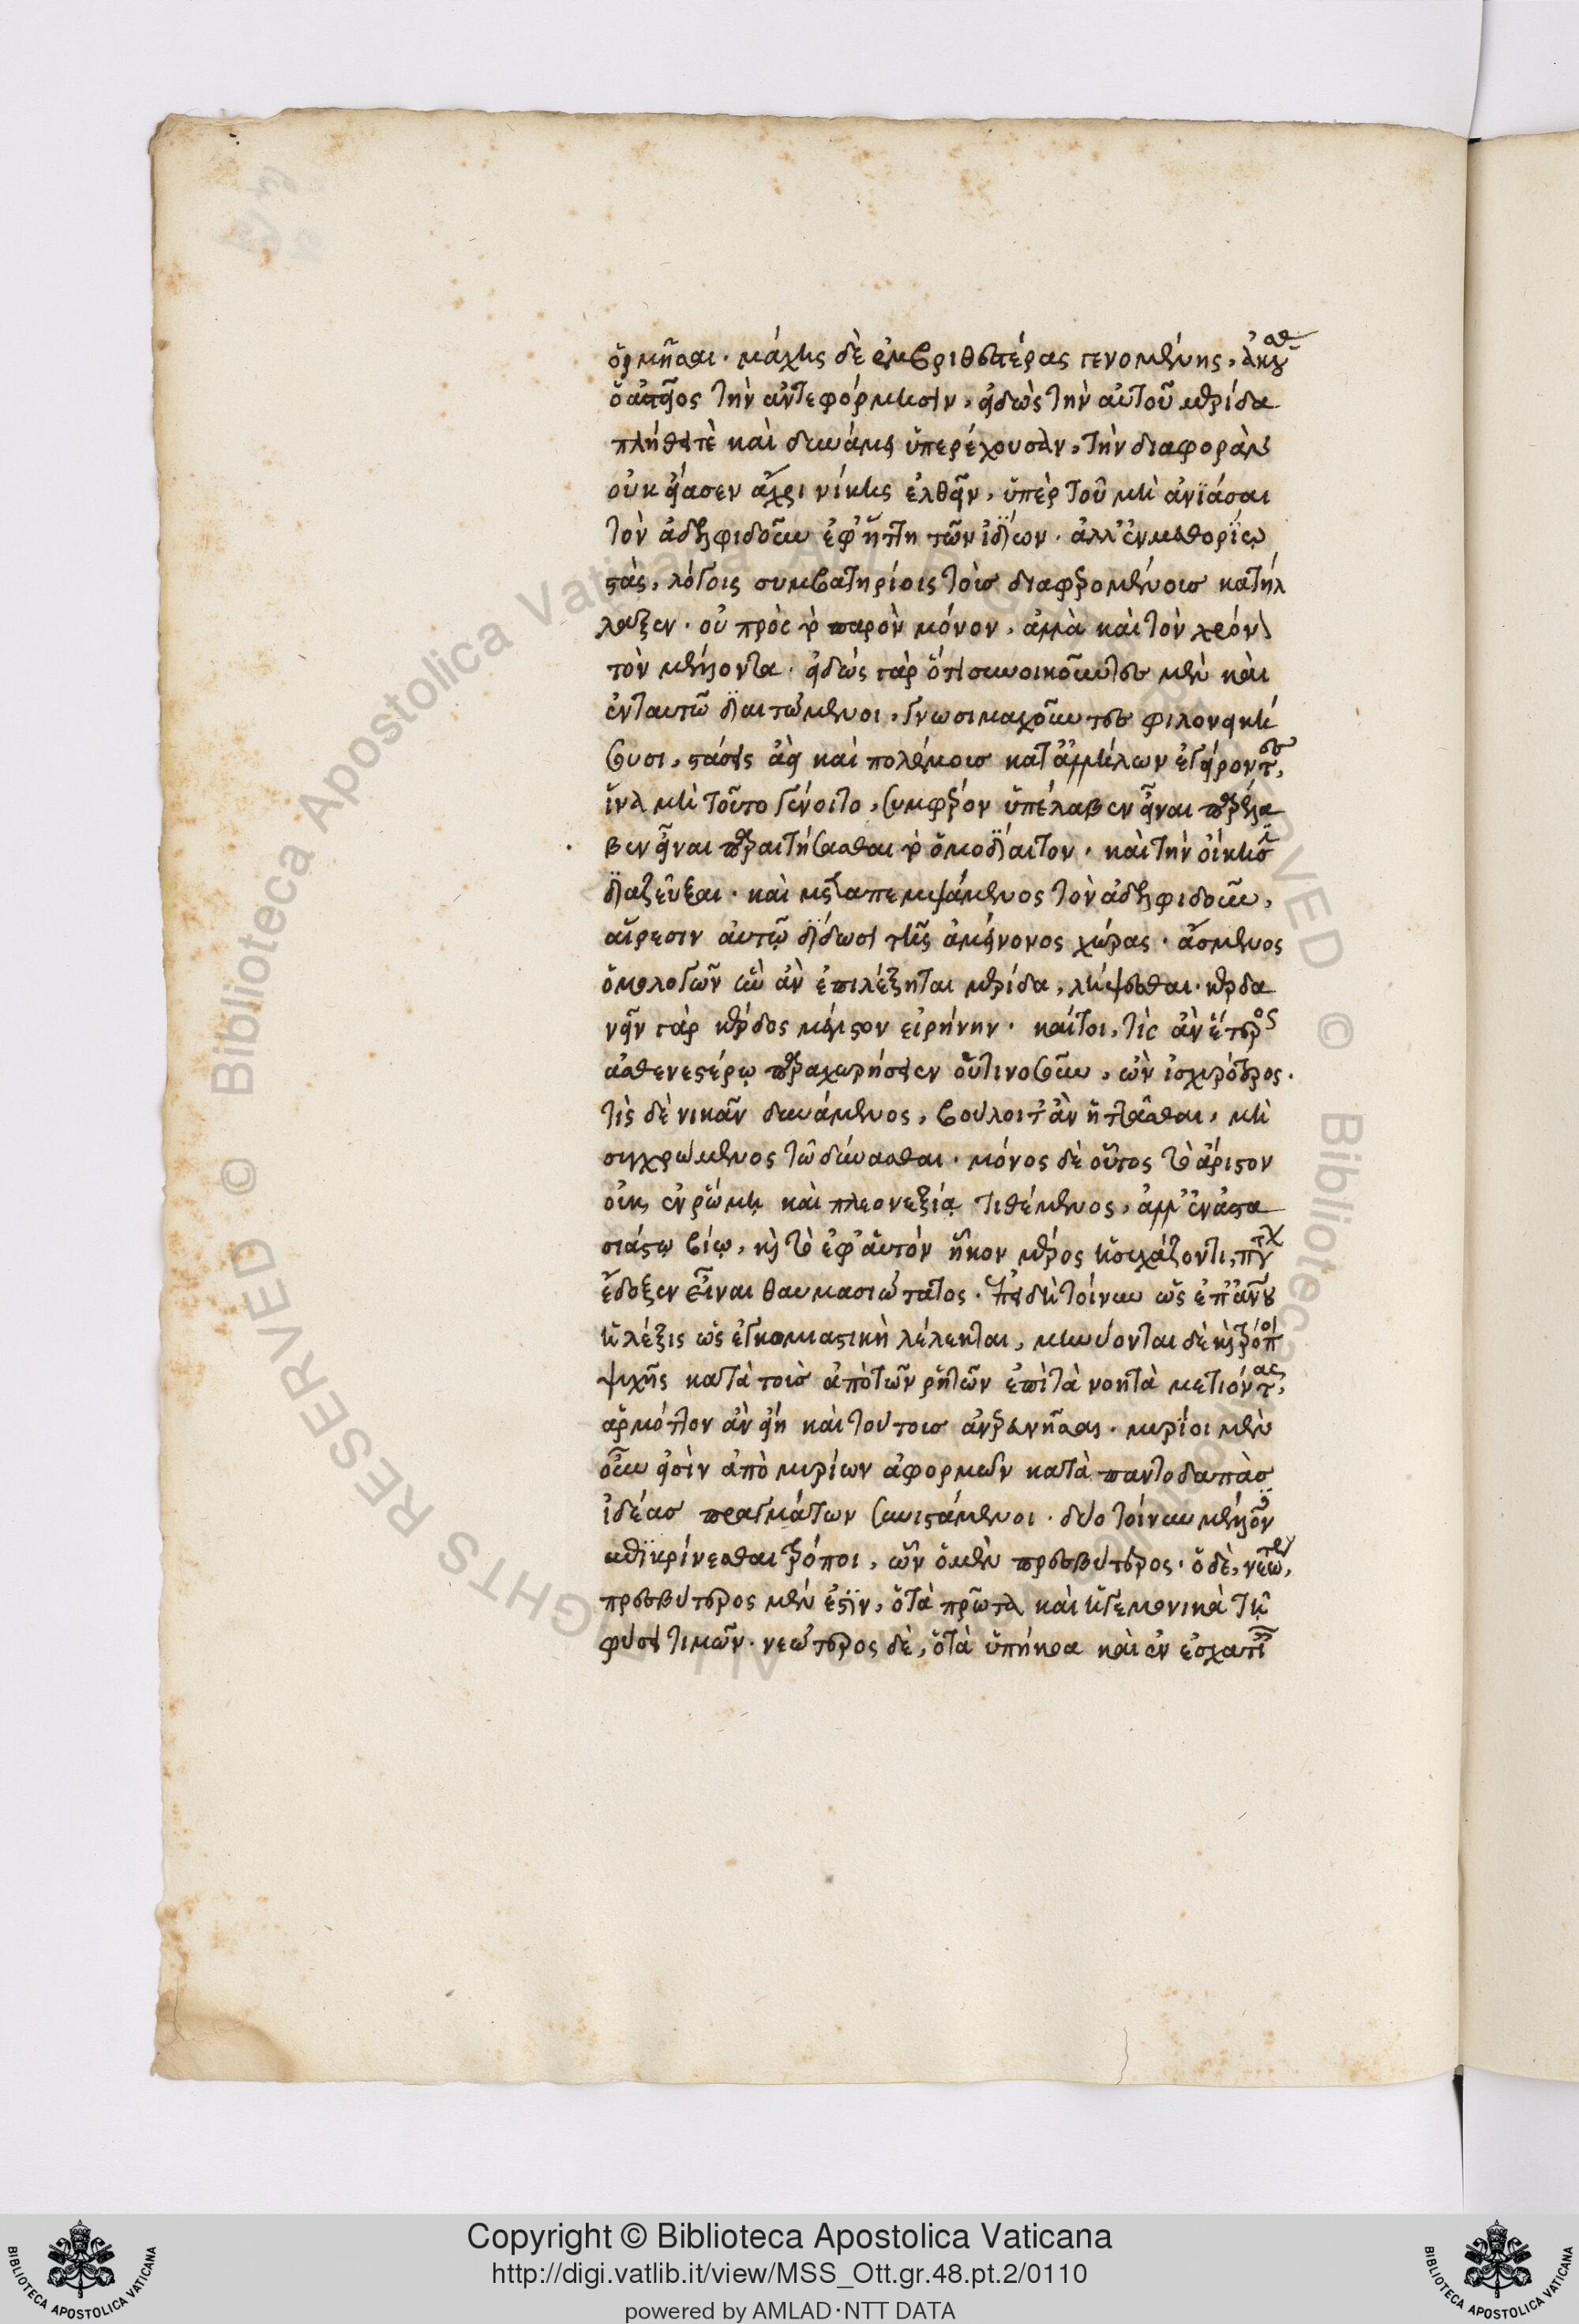 ὁρμῆσαι. μάχης δὲ ἐμβριθεστέρας γενομένης, ἀκουσθ
ὁ ἀστεῖος τὴν ἀντεφόρμησιν, εἰδὼς τὴν αὐτοῦ μερίδα
πλήθει τὲ καὶ δυνάμει ὑπερέχουσαν, τὴν διαφορὰν
οὐκ εἴασεν ἄχρι νίκης ἐλθεῖν, ὑπὲρ τοῦ μὴ ἀνιάσαι
τὸν ἀδελφιδοῦν ἐφ' ἥττῃ τῶν ἰδίων. ἀλλ' ἐν μεθορίῳ
στὰς, λόγοις συμβατηρίοις τοὺς διαφερομένους κατήλ
λαξεν. οὐ πρὸς τὸ παρὸν μόνον, ἀλλὰ καὶ τὸν χρόνον
τὸν μέλλοντα. εἰδὼς γὰρ ὅτι συνοικοῦντες μὲν καὶ
ἐν ταυτῶ διαιτώμενοι, γνωσιμαχοῦντες φιλονεική
σουσι, στάσεις ἀεὶ καὶ πολέμους κατ' ἀλλήλων ἐγείροντες,
ἵνα μὴ τοῦτο γένοιτο, συμφέρον ὑπέλαβεν εἶναι παρέλα
βεν εἶναι παραιτήσασθαι τὸ ὁμοδίαιτον. καὶ τὴν οἴκησιν
διαζεῦξαι. καὶ μεταπεμψάμενος τὸν ἀδελφιδοῦν,
αἵρεσιν αὐτῷ δίδωσι τῆς ἀμείνονος χώρας. ἄσμενος
ὁμολογῶν ἣν ἂν ἐπιλέξηται μερίδα, λήψεσθαι. κερδα
νεῖν γὰρ κέρδος μέγιστον εἰρήνην. καίτοι, τίς ἂν ἕτερος
ἀσθενεστέρῳ παραχωρήσειεν οὑτινοσοῦν, ὢν ἰσχυρότερος.
τίς δὲ νικᾶν δυνάμενος, βούλοιτ' ἂν ἡττᾶσθαι, μὴ
συγχρώμενος τῶ δύνασθαι. μόνος δὲ οὗτος τὸ ἄριστον
οὐκ ἐν ῥώμῃ καὶ πλεονεξίᾳ τιθέμενος, ἀλλ' ἐν ἀστα
σιάστῳ βίῳ, καὶ τὸ ἐφ' αὑτὸν ἧκον μέρος ἡσυχάζοντι, παντ
ἔδοξεν εἶναι θαυμασιώτατος. ἐπεὶ δὴ τοίνυν ὡς ἐπ' ἀνου
ἡ λέξις ὡς ἐγκωμιαστικὴ λέλεκται, μηνύονται δὲ καὶ τρόποι
ψυχῆς κατὰ τοὺς ἀπὸ τῶν ῥητῶν ἐπὶ τὰ νοητὰ μετιόντας,
ἁρμόττον ἂν εἴη καὶ τούτους ἀνερευνῆσαι. μυρίοι μὲν
οὖν εἰσὶν ἀπὸ μυρίων ἀφορμῶν κατὰ παντοδαπὰς
ἰδέας πραγμάτων συνιστάμενοι. δύο τοίνυν μέλλουσιν
ἐπικρίνεσθαι τρόποι, ὧν ὁ μὲν πρεσβύτερος. ὁ δὲ, νεώτερ,
πρεσβύτερος μέν ἐστιν, ὁ τὰ πρῶτα καὶ ἡγεμονικὰ τῇ
φύσει τιμῶν. νεώτερος δὲ, ὁ τὰ ὑπήκοα καὶ ἐν ἐσχατι
Copyright © Biblioteca Apostolica Vaticana
http://digi.vatlib.it/view/MSS_Ott.gr.48.pt.2/0110
powered by AMLAD·NTT DATA